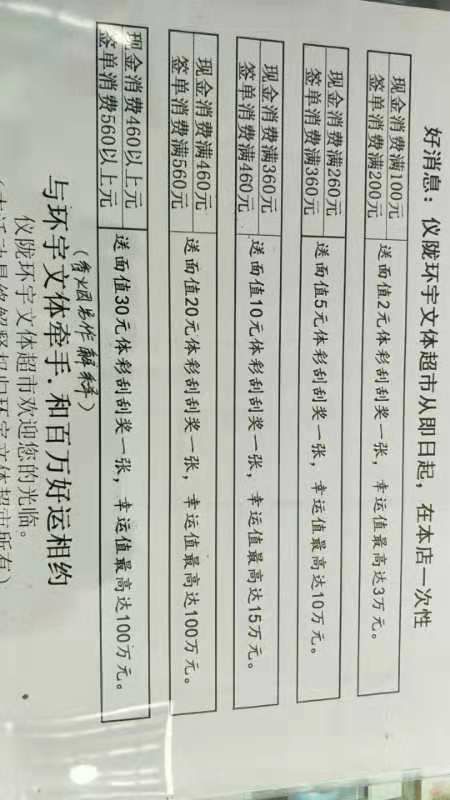 好消息：仪陇环宇文体超市从即日起，在本店一次性
现金消费满100元
签单消费满200元
送面值2元体彩刮刮奖一张，幸运值最高达3万元。
现金消费满260元
签单消费满360元
送面值5元体彩刮刮奖一张，幸运值最高达10万元。
现金消费满360元
签单消费满460元
送面值10元体彩刮刮奖一张，幸运值最高达15万元。
现金消费满460元
签单消费满560元
送面值20元体彩刮刮奖一张，幸运值最高达100万元。
现金消费460以上元
签单消费560以上元
送面值30元体彩刮刮奖一张，幸运值最高达100万元。
作解释)
与环宇文体牵手.和百万好运相约
仪陇环宇文体超市欢迎您的光临。
(本活动最终解释权归环宇文体超市所有)